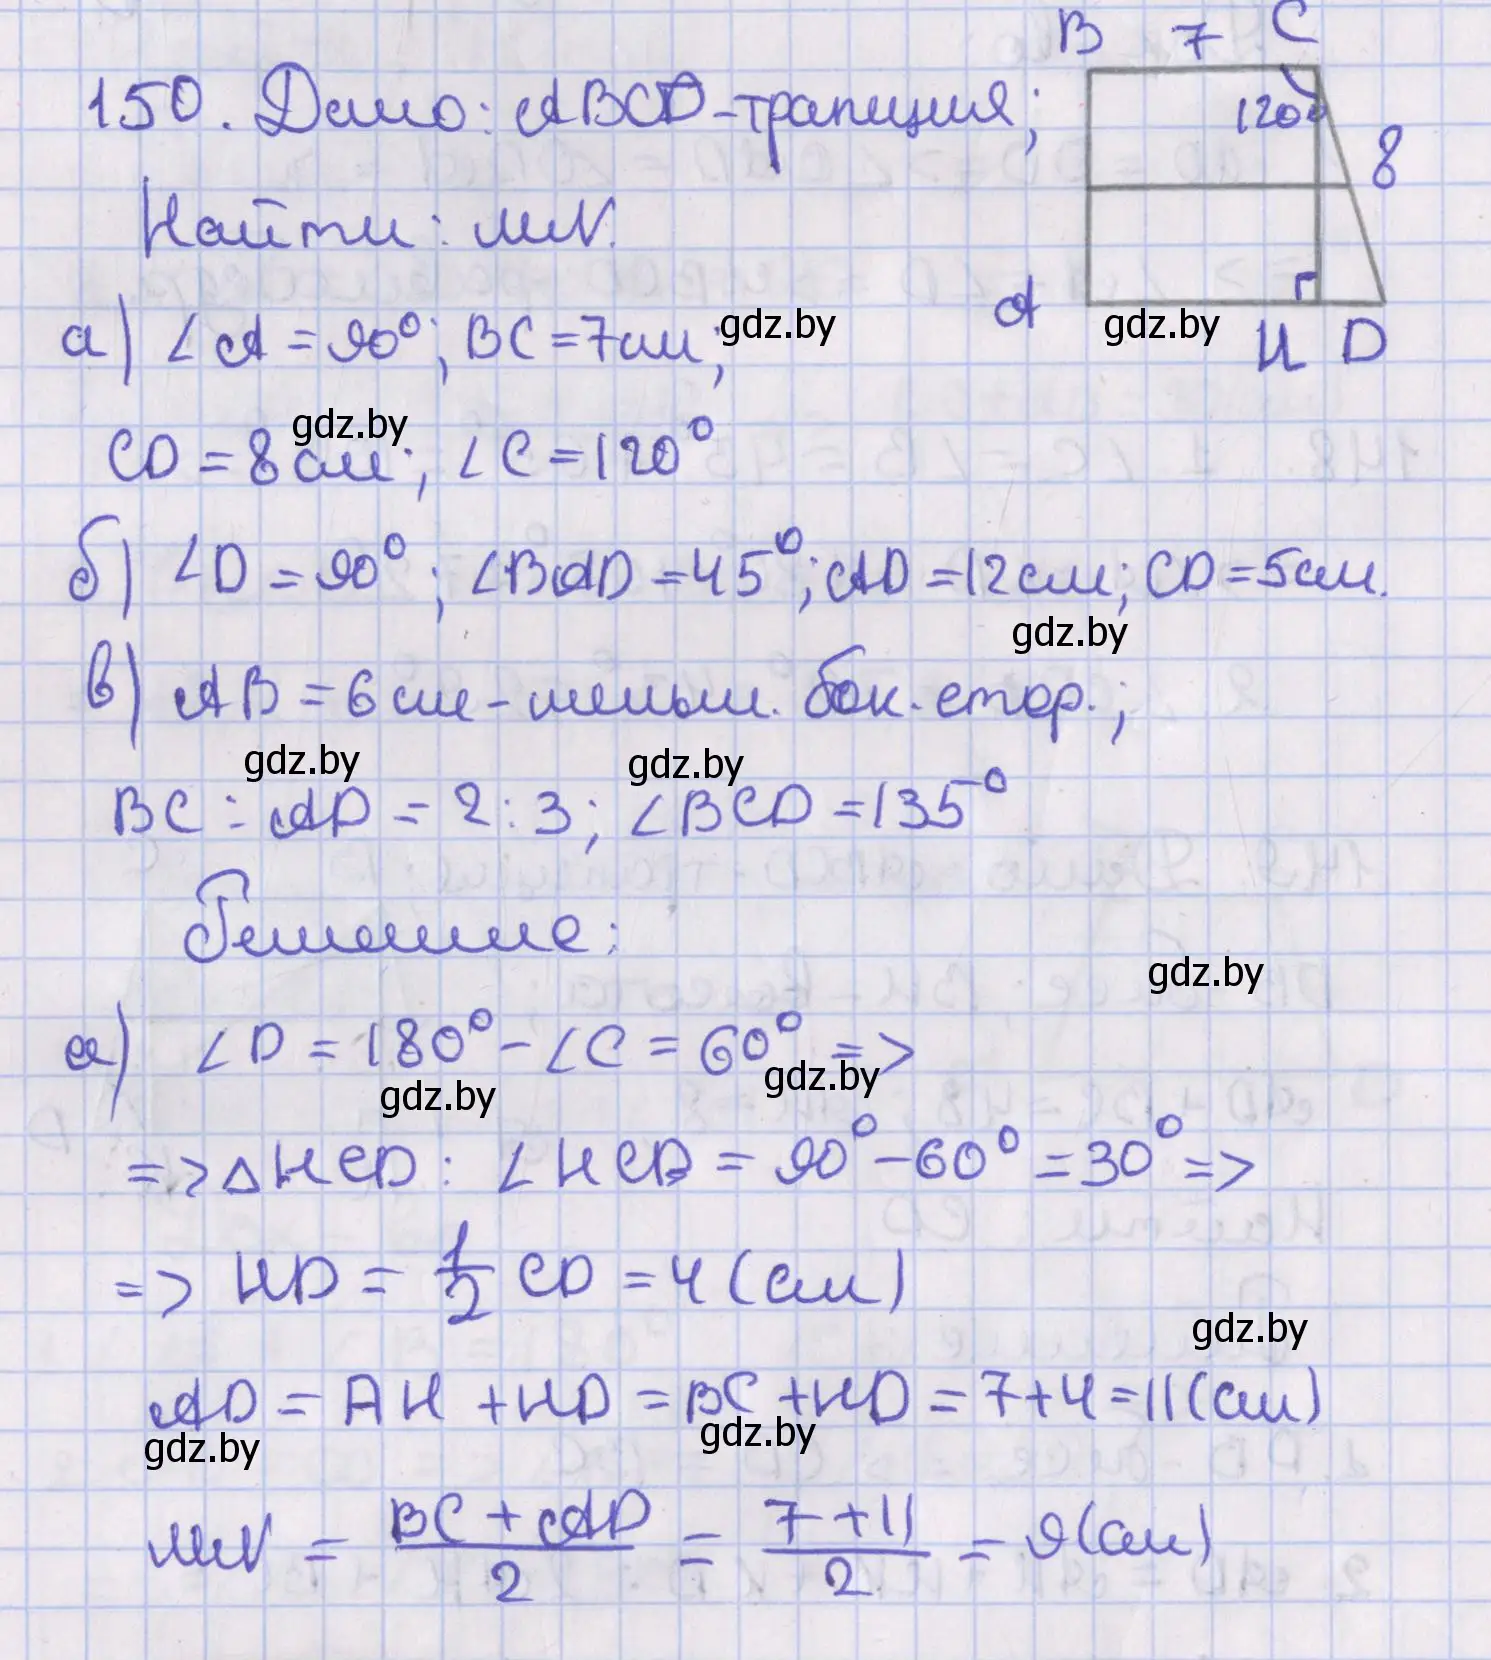 B 7 C
150. Дано: ABCD - трапеция;
120°
8
Найти: MN.
A H D
а) ∠A = 90°; BC = 7 см;
gdz.by gdz.by
CD = 8 см; ∠C = 120°
gdz.by
б) ∠D = 90°; ∠BAD = 45°; AD = 12 см; CD = 5 см.
gdz.by
в) AB = 6 см - меньш. бок. стор.;
gdz.by gdz.by
BC : AD = 2 : 3; ∠BCD = 135°
Решение:
gdz.by
а) ∠D = 180° - ∠C = 60° =>
gdz.by gdz.by
=> △HCD: ∠HCD = 90° - 60° = 30° =>
=> HD = 1/2 CD = 4 (см)
gdz.by
AD = AH + HD = BC + HD = 7 + 4 = 11 (см)
gdz.by gdz.by
MN = BC + AD / 2 = 7 + 11 / 2 = 9 (см)